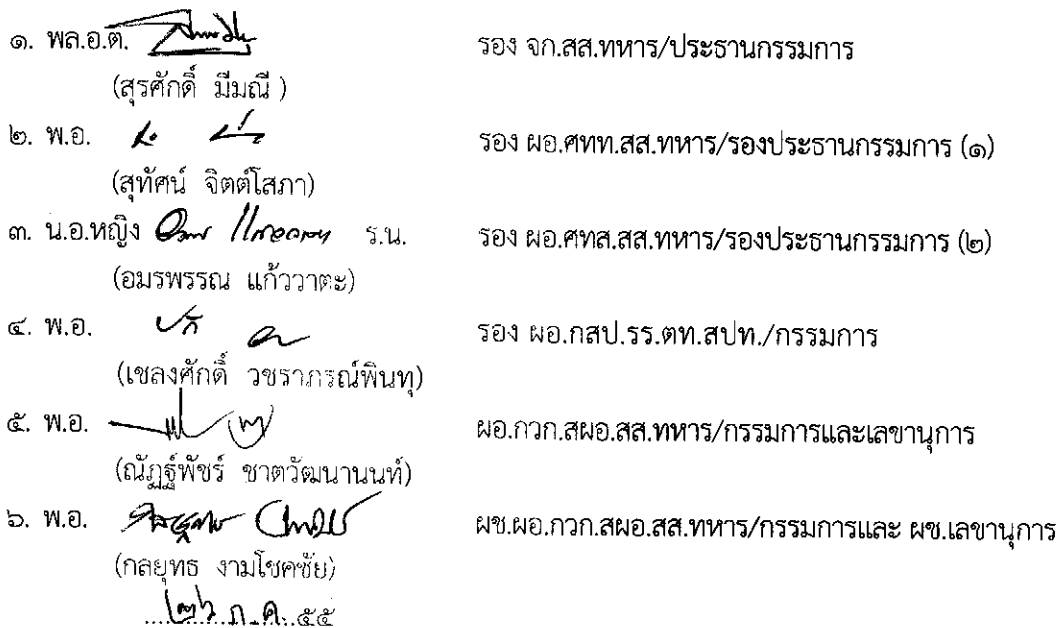 ๑. พล.อ.ต. รอง จก.สส.ทหาร/ประธานกรรมการ
(สุรศักดิ์ มีมณี)
๒. พ.อ. รอง ผอ.ศทท.สส.ทหาร/รองประธานกรรมการ (๑)
(สุทัศน์ จิตต์โสภา)
๓. น.อ.หญิง ร.น. รอง ผอ.ศทส.สส.ทหาร/รองประธานกรรมการ (๒)
(อมรพรรณ แก้ววาตะ)
๔. พ.อ. รอง ผอ.กสป.รร.ตท.สปท./กรรมการ
(เชลงศักดิ์ วชราภรณ์พินทุ)
๕. พ.อ. ผอ.กวก.สผอ.สส.ทหาร/กรรมการและเลขานุการ
(ณัฏฐ์พัชร์ ชาตวัฒนานนท์)
๖. พ.อ. ผช.ผอ.กวก.สผอ.สส.ทหาร/กรรมการและ ผช.เลขานุการ
(กลยุทธ งามโชคชัย)
๒๖ ก.ค. ๕๕